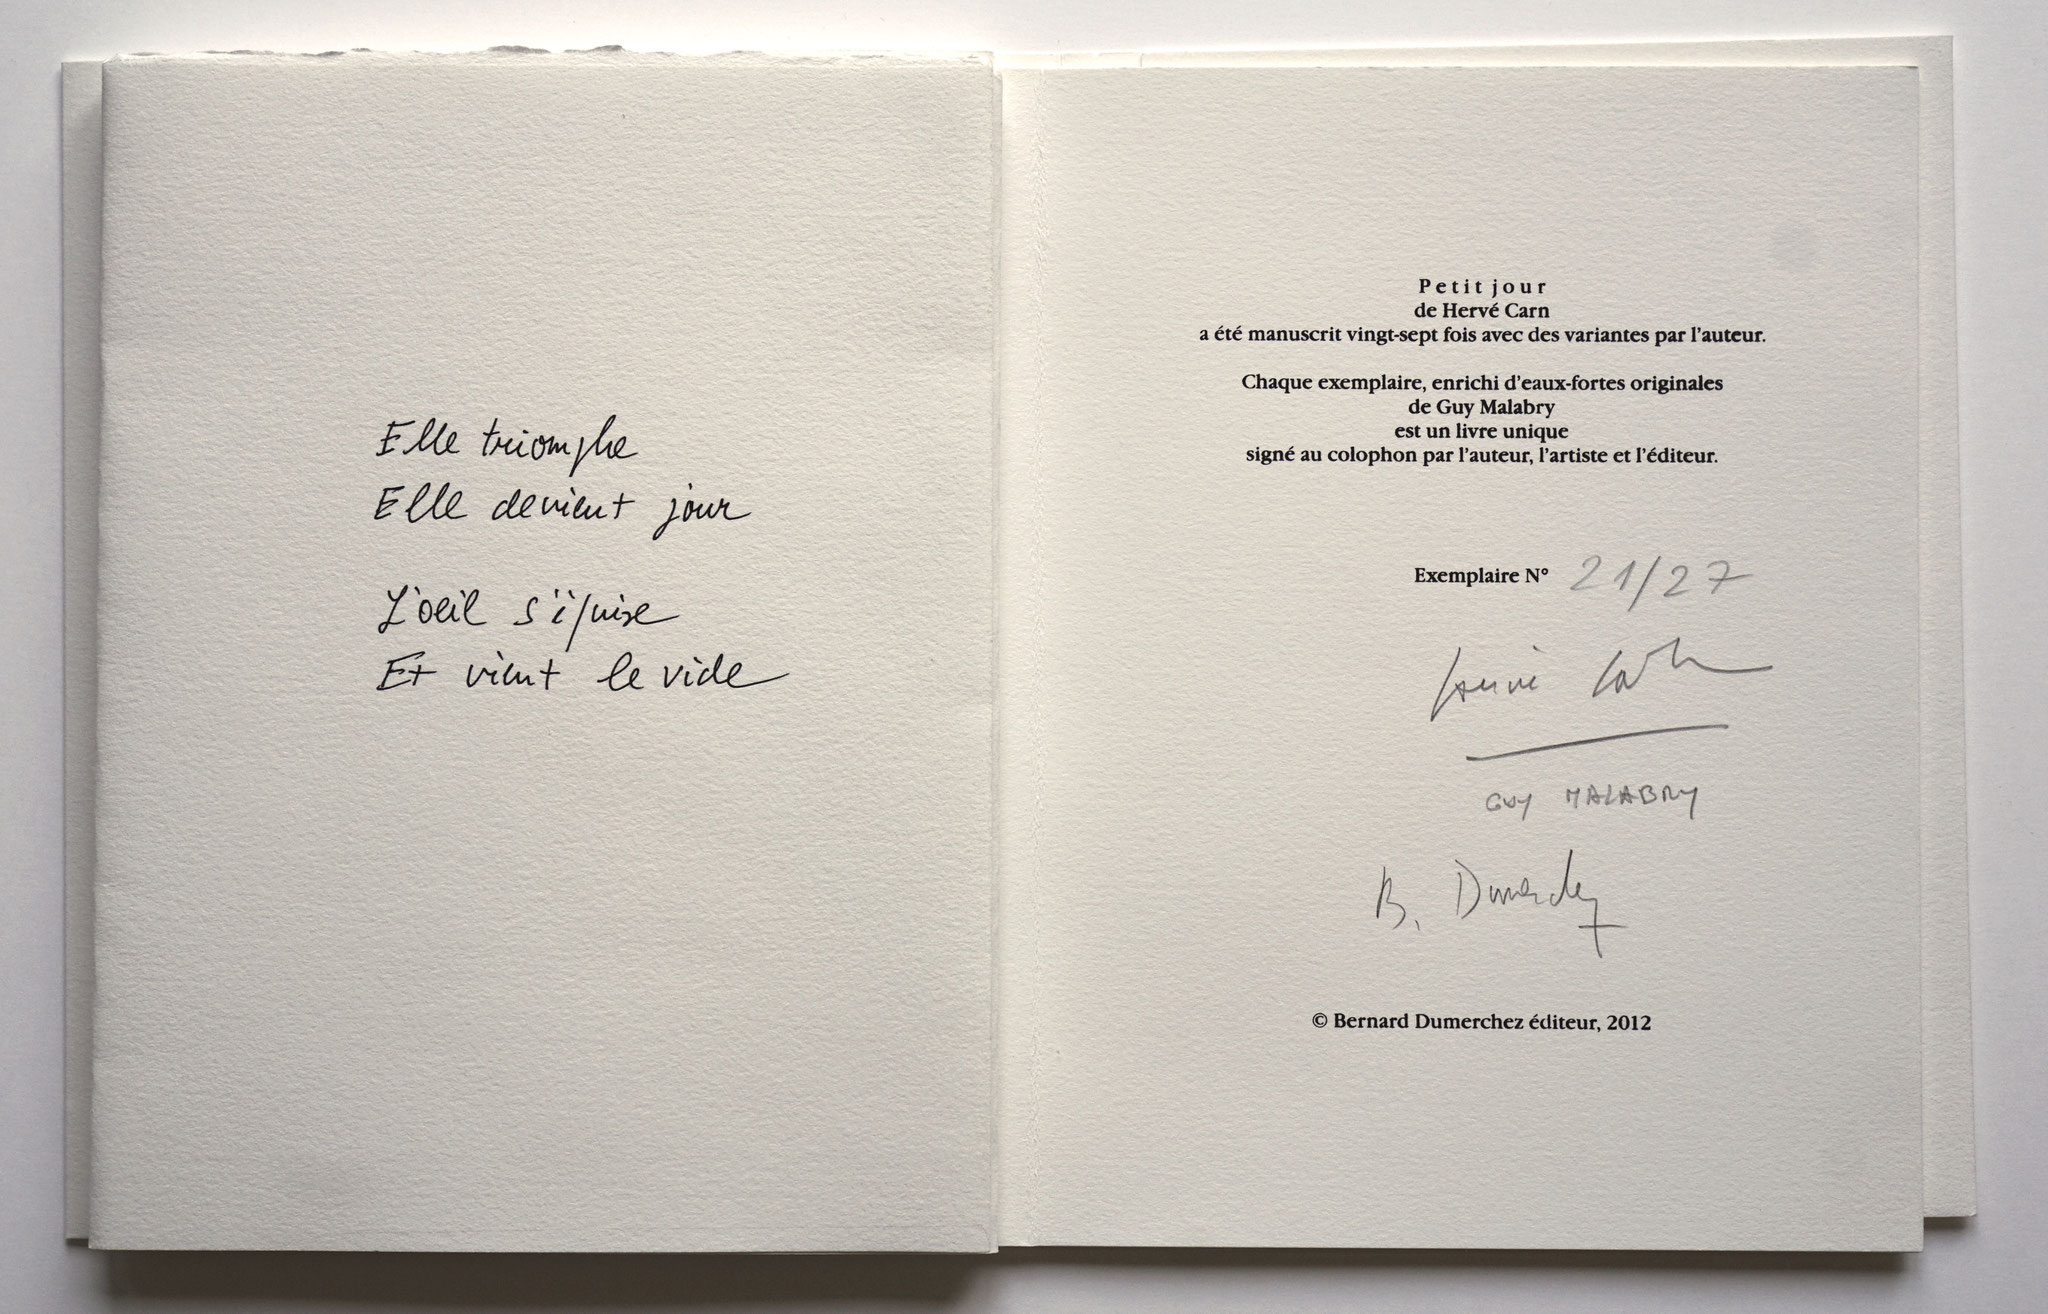 Elle triomphe
Elle devient jour
L'oeil s'épuise
Et vient le vide
Petit jour
de Hervé Carn
a été manuscrit vingt-sept fois avec des variantes par l'auteur.
Chaque exemplaire, enrichi d'eaux-fortes originales
de Guy Malabry
est un livre unique
signé au colophon par l'auteur, l'artiste et l'éditeur.
Exemplaire N° 21/27
Hervé Carn
GUY MALABRY
B. Dumerchez
© Bernard Dumerchez éditeur, 2012